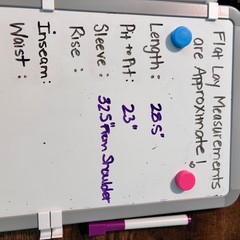 Flat Lay Measurements
are Approximate!
Length: 28.5"
Pit to Pit: 23"
Sleeve: 32.5" From Shoulder
Rise:
Inseam:
Waist: